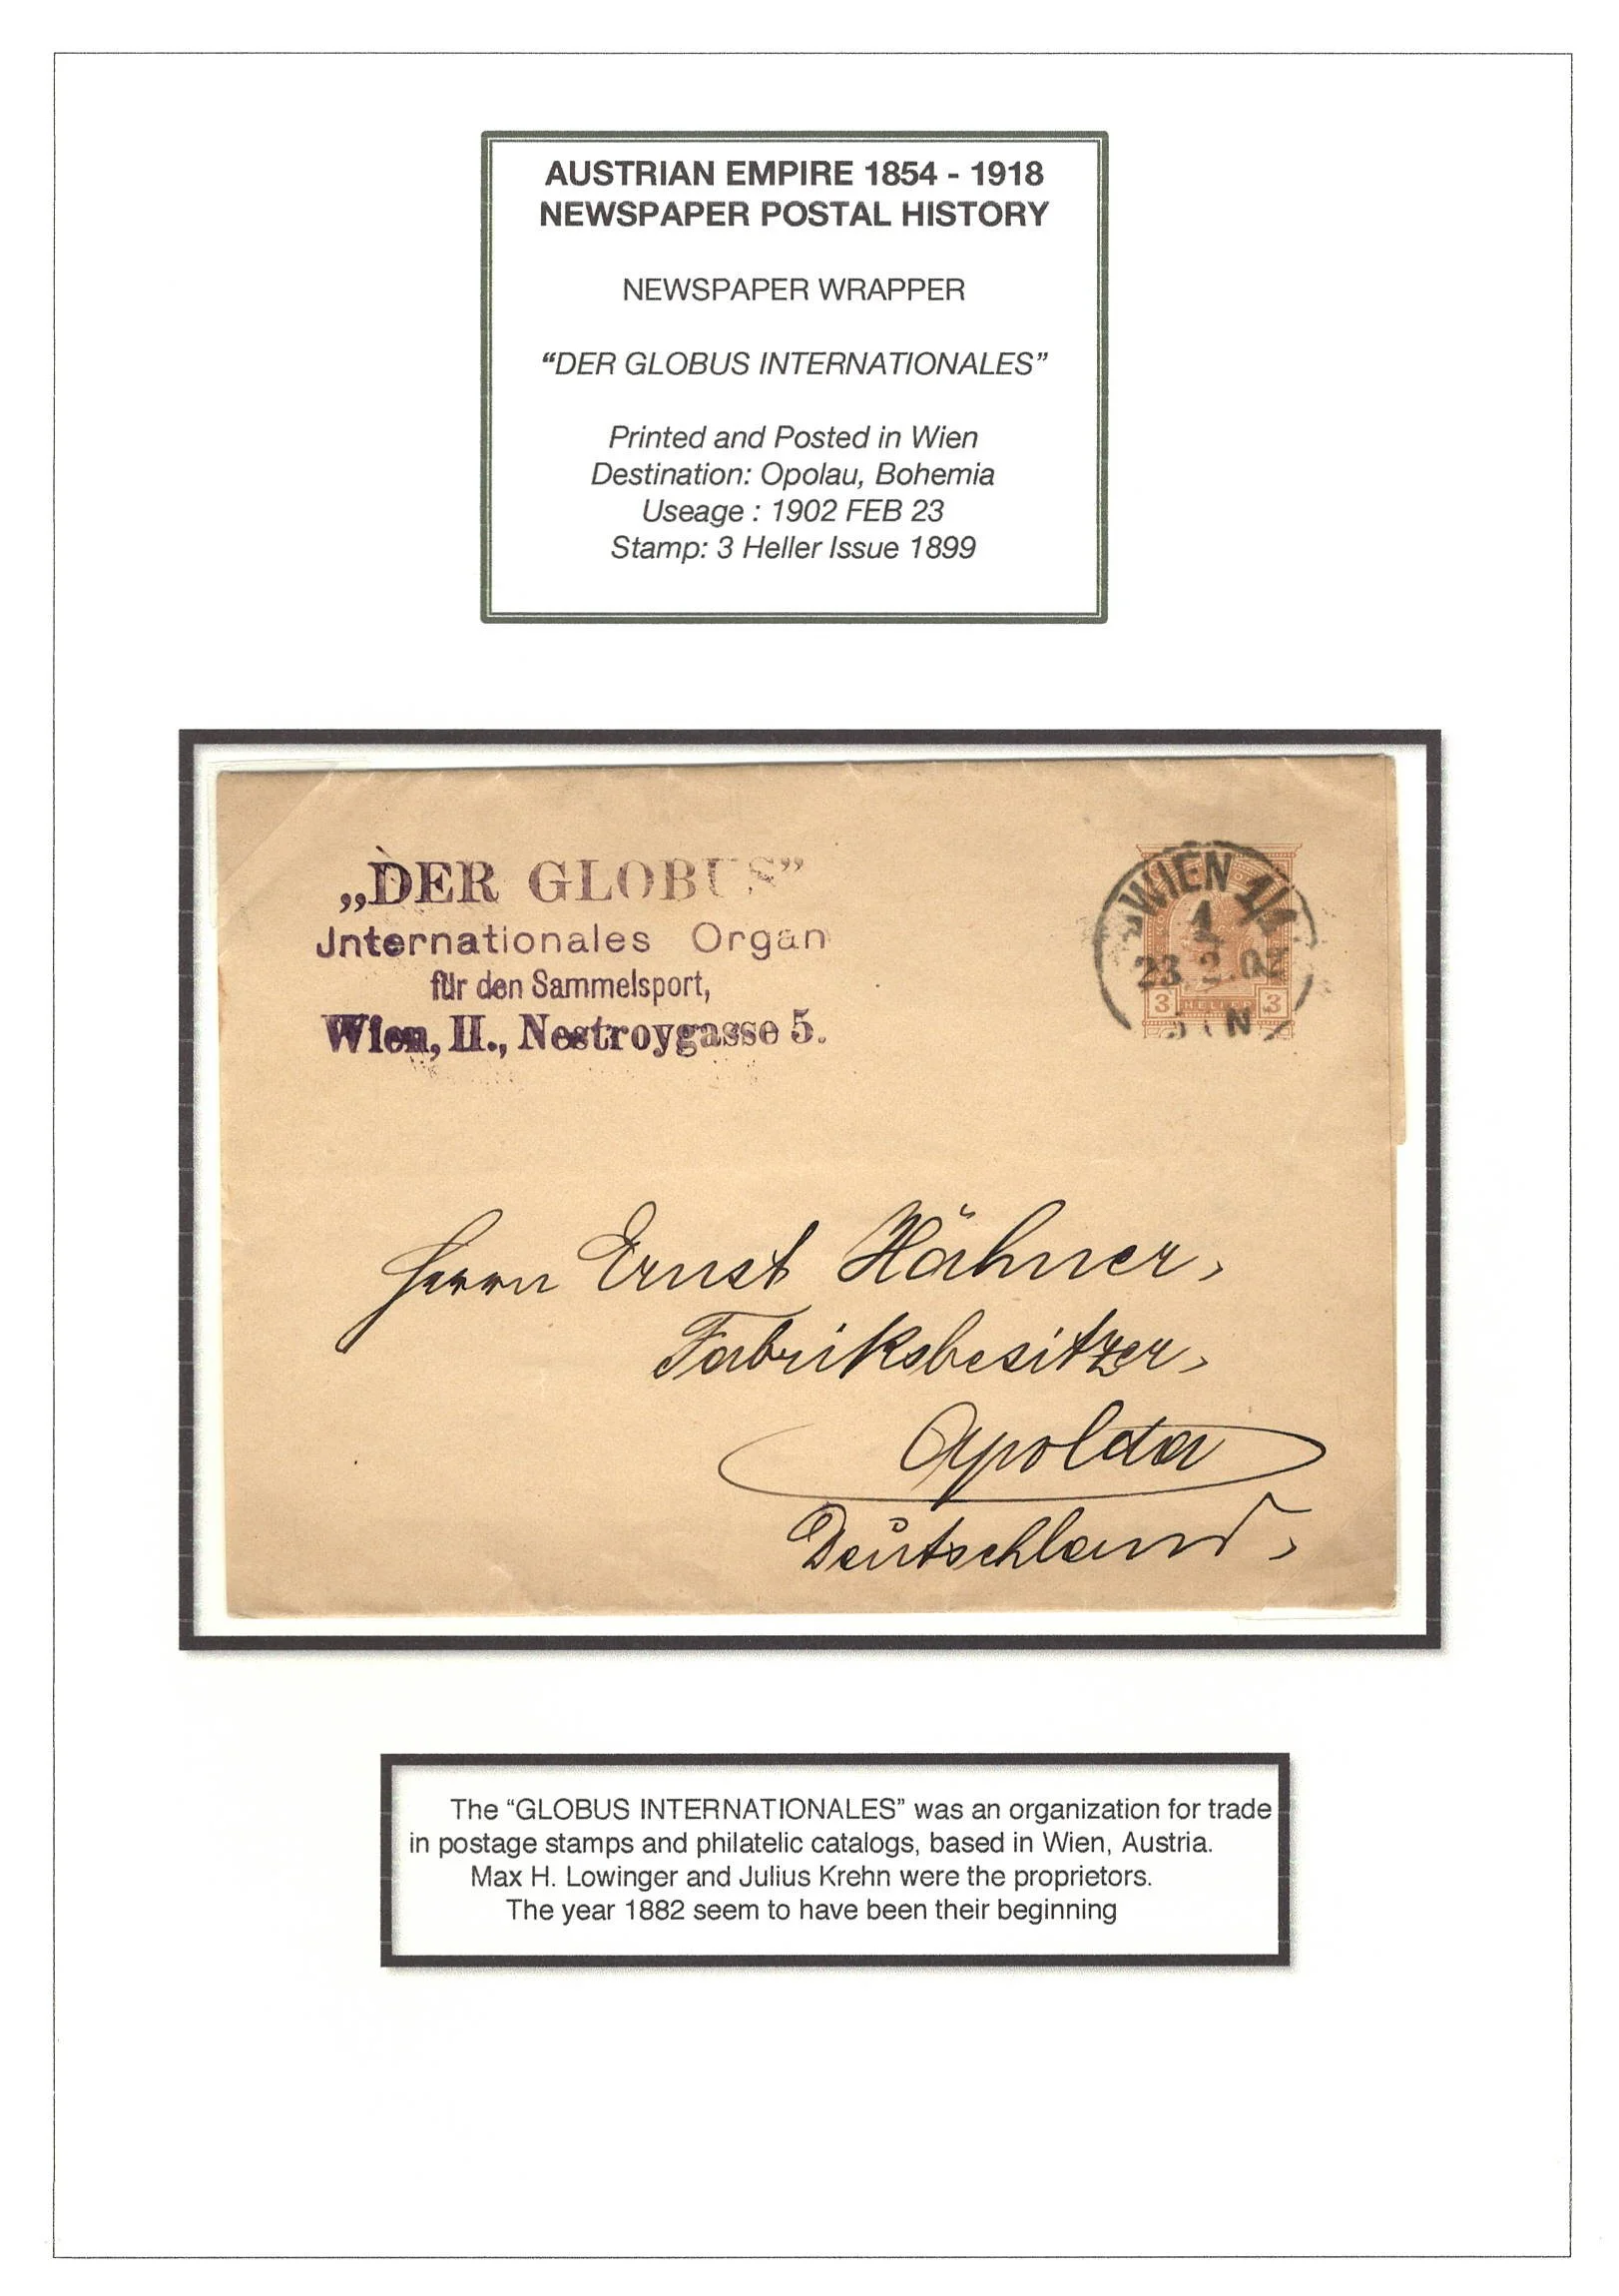 AUSTRIAN EMPIRE 1854 - 1918
NEWSPAPER POSTAL HISTORY
NEWSPAPER WRAPPER
“DER GLOBUS INTERNATIONALES”
Printed and Posted in Wien
Destination: Opolau, Bohemia
Useage : 1902 FEB 23
Stamp: 3 Heller Issue 1899
„DER GLOBUS”
Jnternationales Organ
für den Sammelsport,
Wien, II., Nestroygasse 5.
WIEN 1/1
1
23 2 02
3 HELLER 3
Herrn Ernst Hähner,
Fabriksbesitzer,
Apolda
Deutschland,
The “GLOBUS INTERNATIONALES” was an organization for trade
in postage stamps and philatelic catalogs, based in Wien, Austria.
Max H. Lowinger and Julius Krehn were the proprietors.
The year 1882 seem to have been their beginning